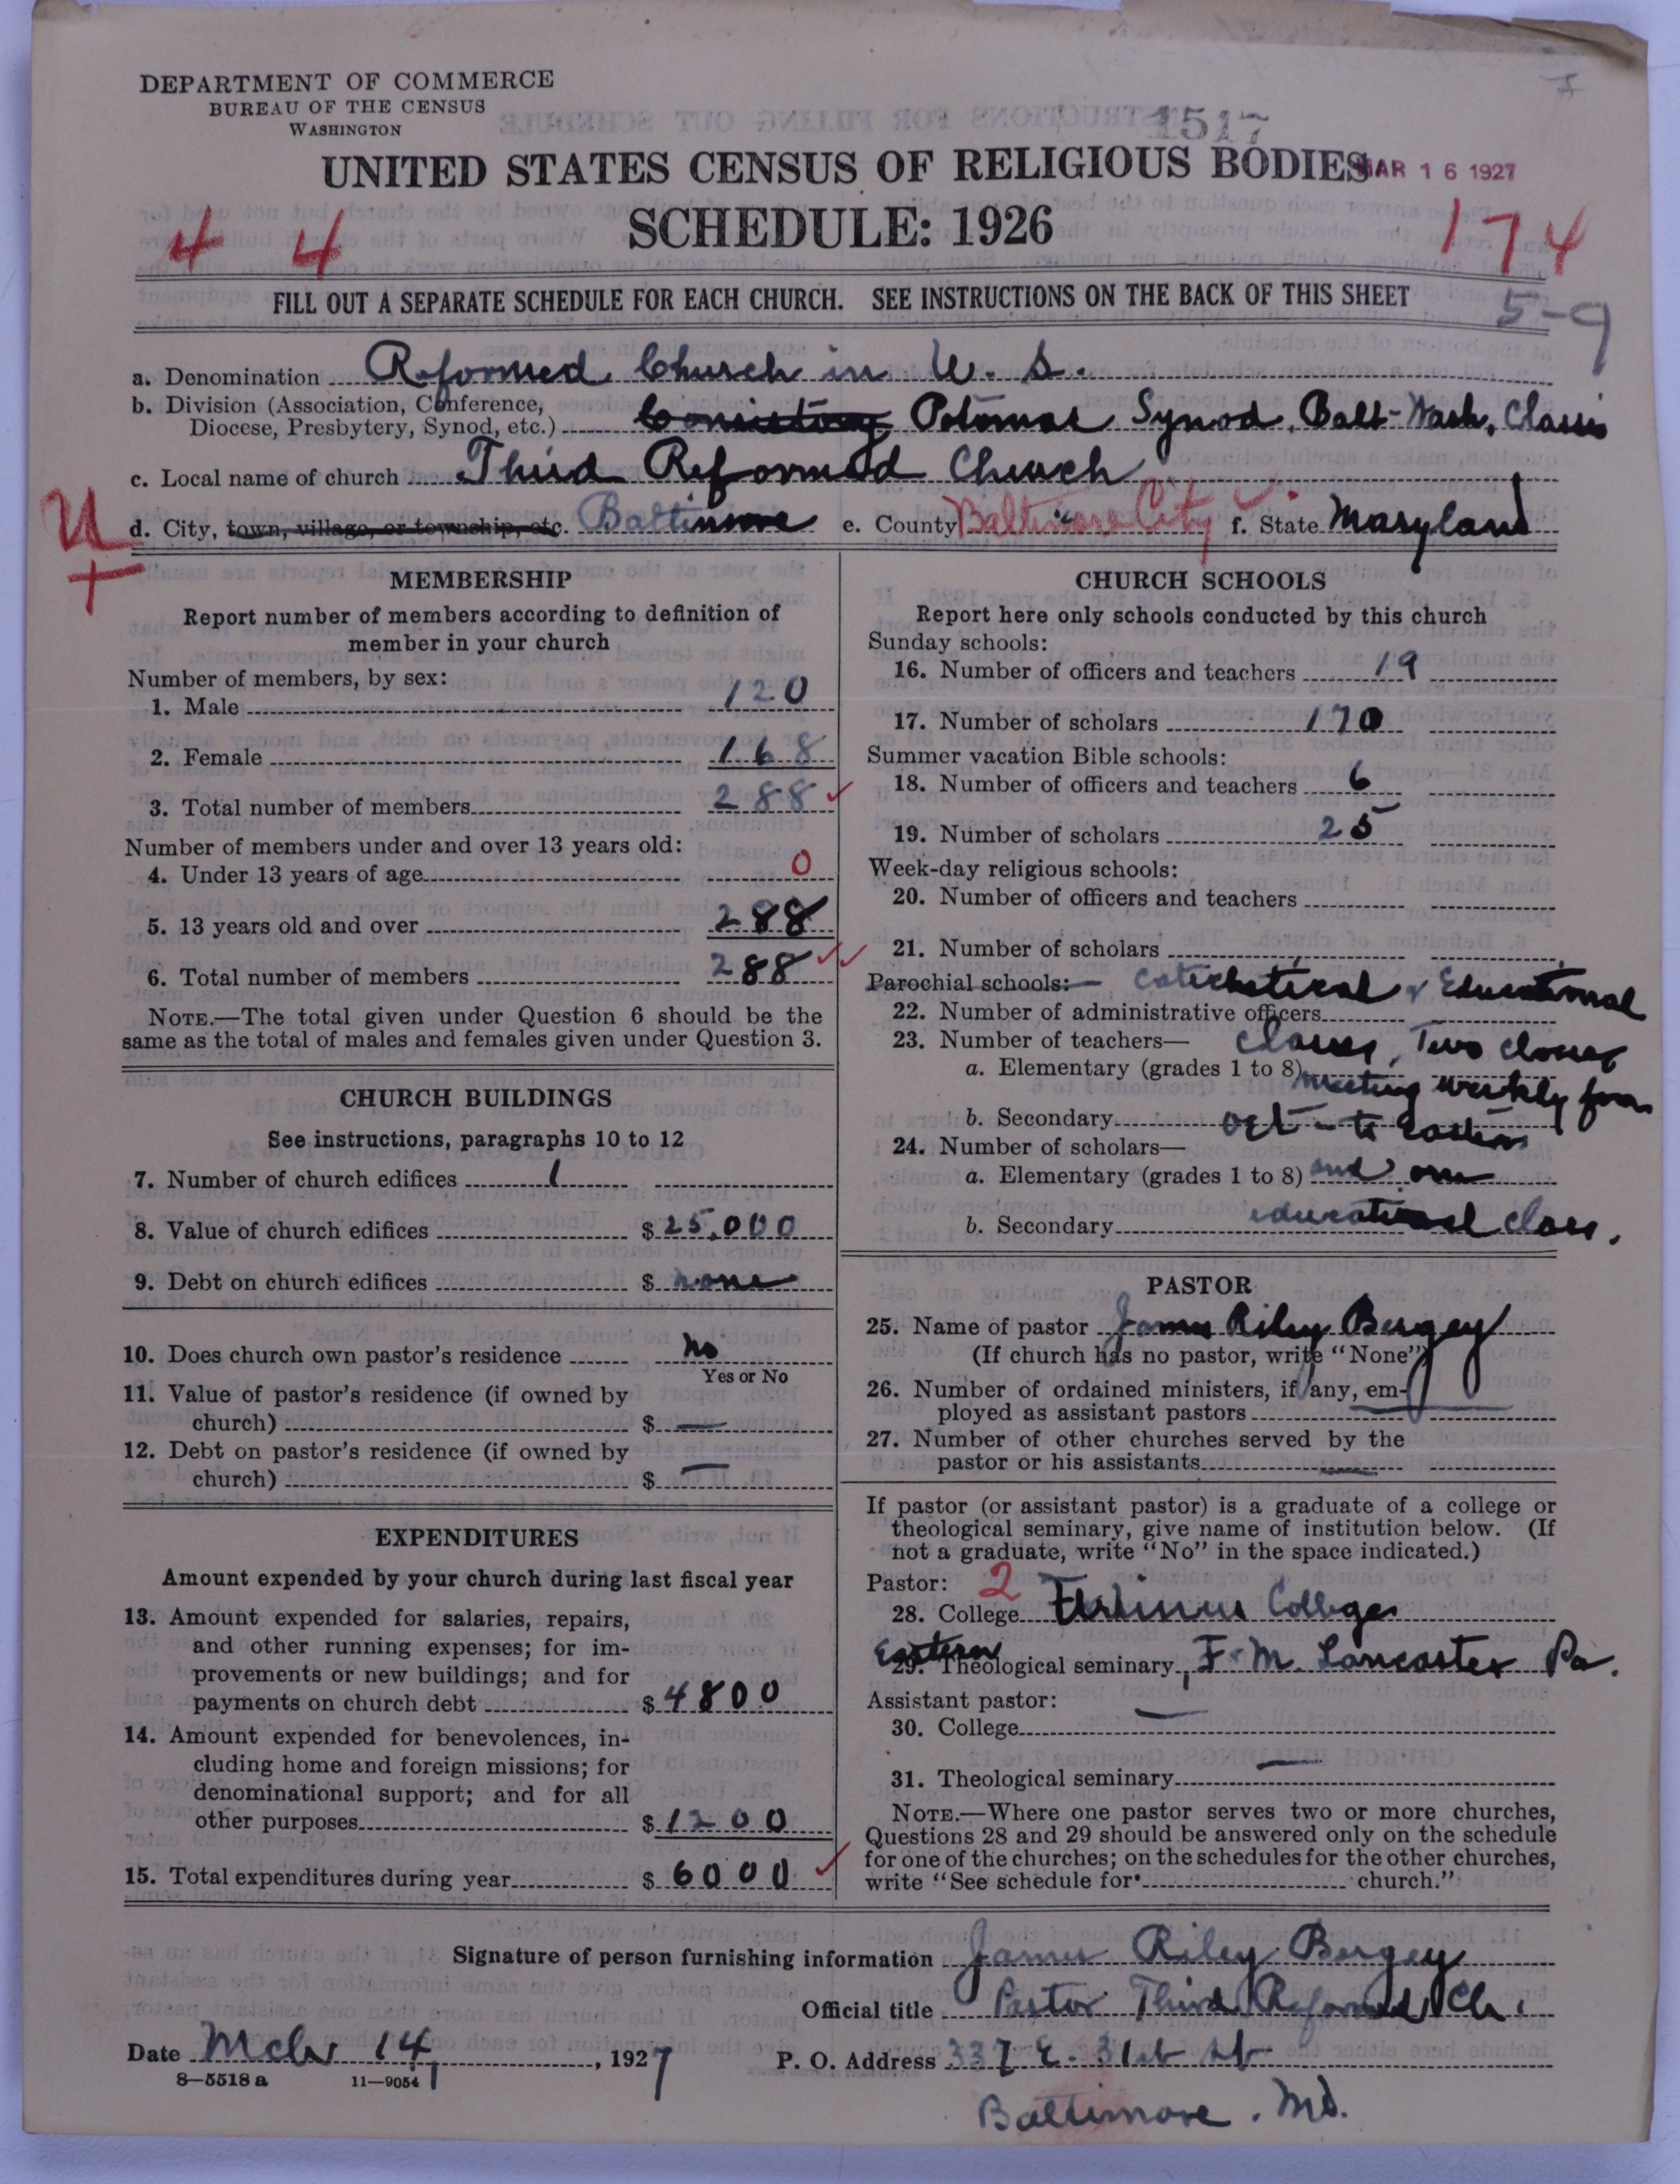 DEPARTMENT OF COMMERCE
BUREAU OF THE CENSUS
WASHINGTON
1517
UNITED STATES CENSUS OF RELIGIOUS BODIES
MAR 16 1927
SCHEDULE: 1926
4 4
174
FILL OUT A SEPARATE SCHEDULE FOR EACH CHURCH. SEE INSTRUCTIONS ON THE BACK OF THIS SHEET
5-9
a. Denomination Reformed Church in U. S.
b. Division (Association, Conference,
Diocese, Presbytery, Synod, etc.) Potomac Synod, Balt-Wash, Classis
c. Local name of church Third Reformed Church
U
d. City, town, village, or township, etc. Baltimore e. County Baltimore City f. State Maryland
MEMBERSHIP
Report number of members according to definition of
member in your church
Number of members, by sex:
1. Male 120
2. Female 168
3. Total number of members 288
Number of members under and over 13 years old:
4. Under 13 years of age 0
5. 13 years old and over 288
6. Total number of members 288
NOTE.—The total given under Question 6 should be the
same as the total of males and females given under Question 3.
CHURCH BUILDINGS
See instructions, paragraphs 10 to 12
7. Number of church edifices 1
8. Value of church edifices $ 25,000
9. Debt on church edifices $ none
10. Does church own pastor's residence No
Yes or No
11. Value of pastor's residence (if owned by
church) $ —
12. Debt on pastor's residence (if owned by
church) $ —
EXPENDITURES
Amount expended by your church during last fiscal year
13. Amount expended for salaries, repairs,
and other running expenses; for im-
provements or new buildings; and for
payments on church debt $ 4800
14. Amount expended for benevolences, in-
cluding home and foreign missions; for
denominational support; and for all
other purposes $ 1200
15. Total expenditures during year $ 6000
CHURCH SCHOOLS
Report here only schools conducted by this church
Sunday schools:
16. Number of officers and teachers 19
17. Number of scholars 170
Summer vacation Bible schools:
18. Number of officers and teachers 6
19. Number of scholars 25
Week-day religious schools:
20. Number of officers and teachers
21. Number of scholars
Parochial schools:— Catechetical & Educational
22. Number of administrative officers
23. Number of teachers— Classes, Two classes
a. Elementary (grades 1 to 8) meeting weekly from
b. Secondary Oct - to Easter
24. Number of scholars—
a. Elementary (grades 1 to 8) and one
b. Secondary educational class.
PASTOR
25. Name of pastor James Riley Bergey
(If church has no pastor, write "None")
26. Number of ordained ministers, if any, em-
ployed as assistant pastors —
27. Number of other churches served by the
pastor or his assistants —
If pastor (or assistant pastor) is a graduate of a college or
theological seminary, give name of institution below. (If
not a graduate, write "No" in the space indicated.)
Pastor: 2
28. College Ursinus College
Eastern
29. Theological seminary F & M. Lancaster Pa.
Assistant pastor:
30. College —
31. Theological seminary —
NOTE.—Where one pastor serves two or more churches,
Questions 28 and 29 should be answered only on the schedule
for one of the churches; on the schedules for the other churches,
write "See schedule for church."
Signature of person furnishing information James Riley Bergey
Official title Pastor Third Reformed Ch.
Date Mch 14, 1927 P. O. Address 337 E. 31st St
8-5518 a 11-9054
Baltimore. Md.